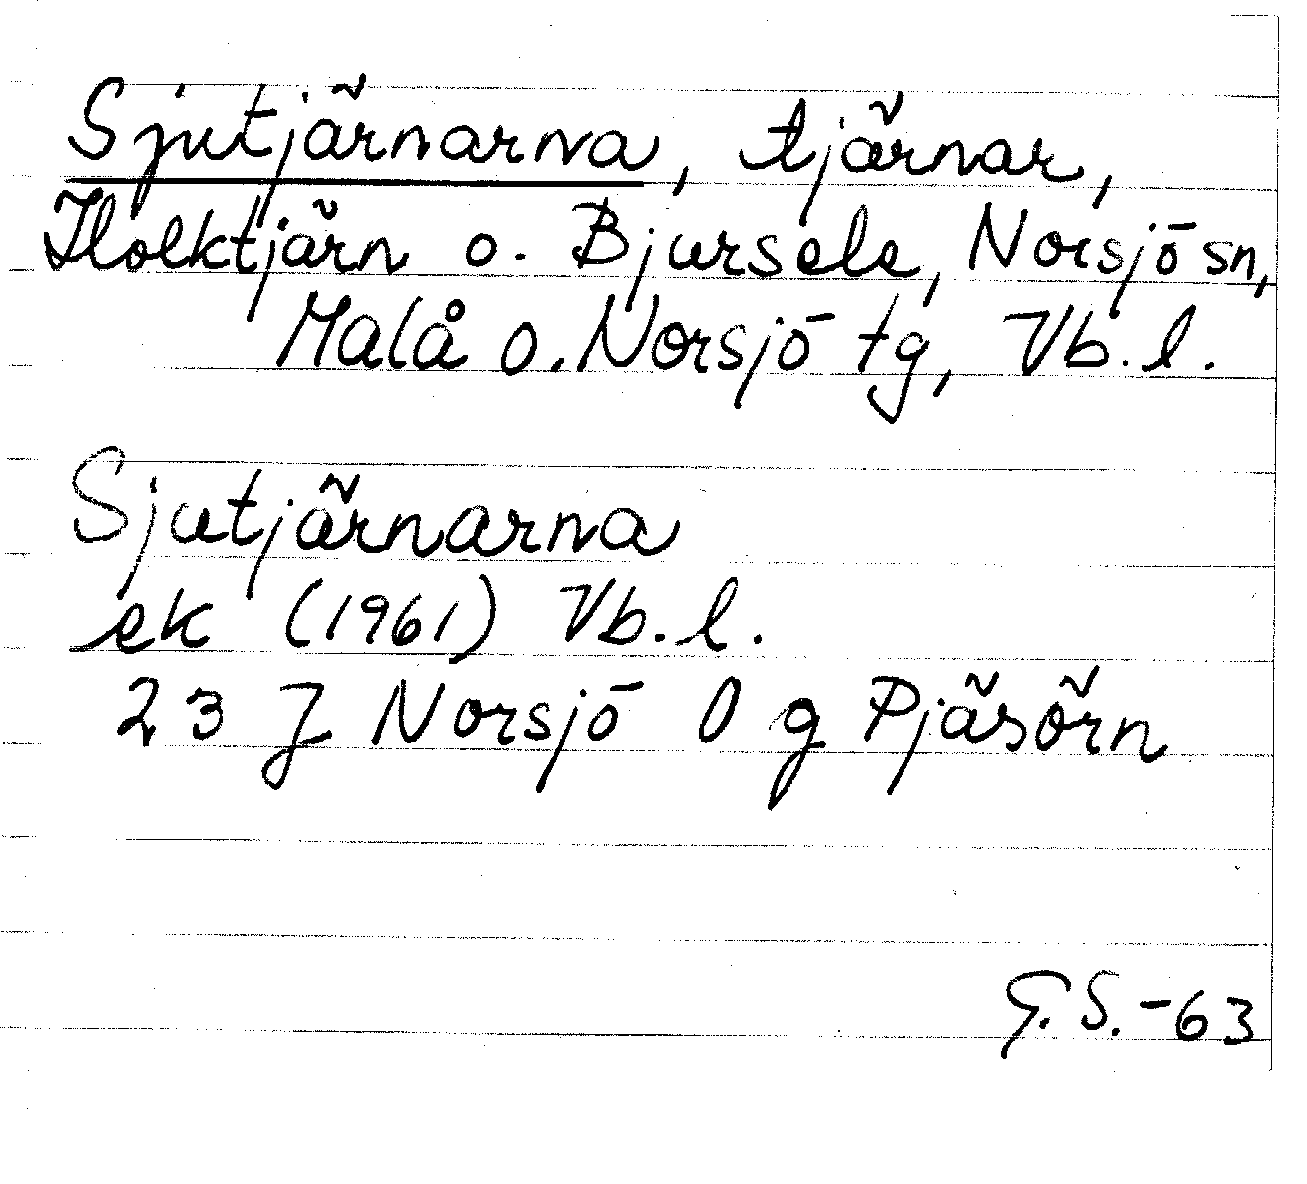 Sjutjärnarna, tjärnar,
Holktjärn o. Bjursele, Norsjö sn,
Malå o. Norsjö tg, Vb. l.
Sjutjärnarna
ek (1961) Vb. l.
23 J Norsjö 0 g Pjäsörn
G. S. -63